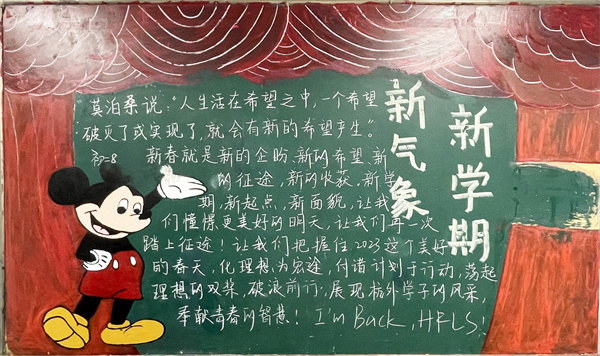 新学期
新气象
莫泊桑说:“人生活在希望之中,一个希望
破灭了或实现了,就会有新的希望产生”。
初一8
新春就是新的企盼、新的希望、新
的征途,新的收获。新学
期,新起点,新面貌,让我
们憧憬更美好的明天,让我们再一次
踏上征途!让我们把握住2023这个美好
的春天,化理想为宏途,付诸计划于行动,荡起
理想的双桨,破浪前行,展现杭外学子的风采,
奉献青春的智慧! I'm Back, HFLS!